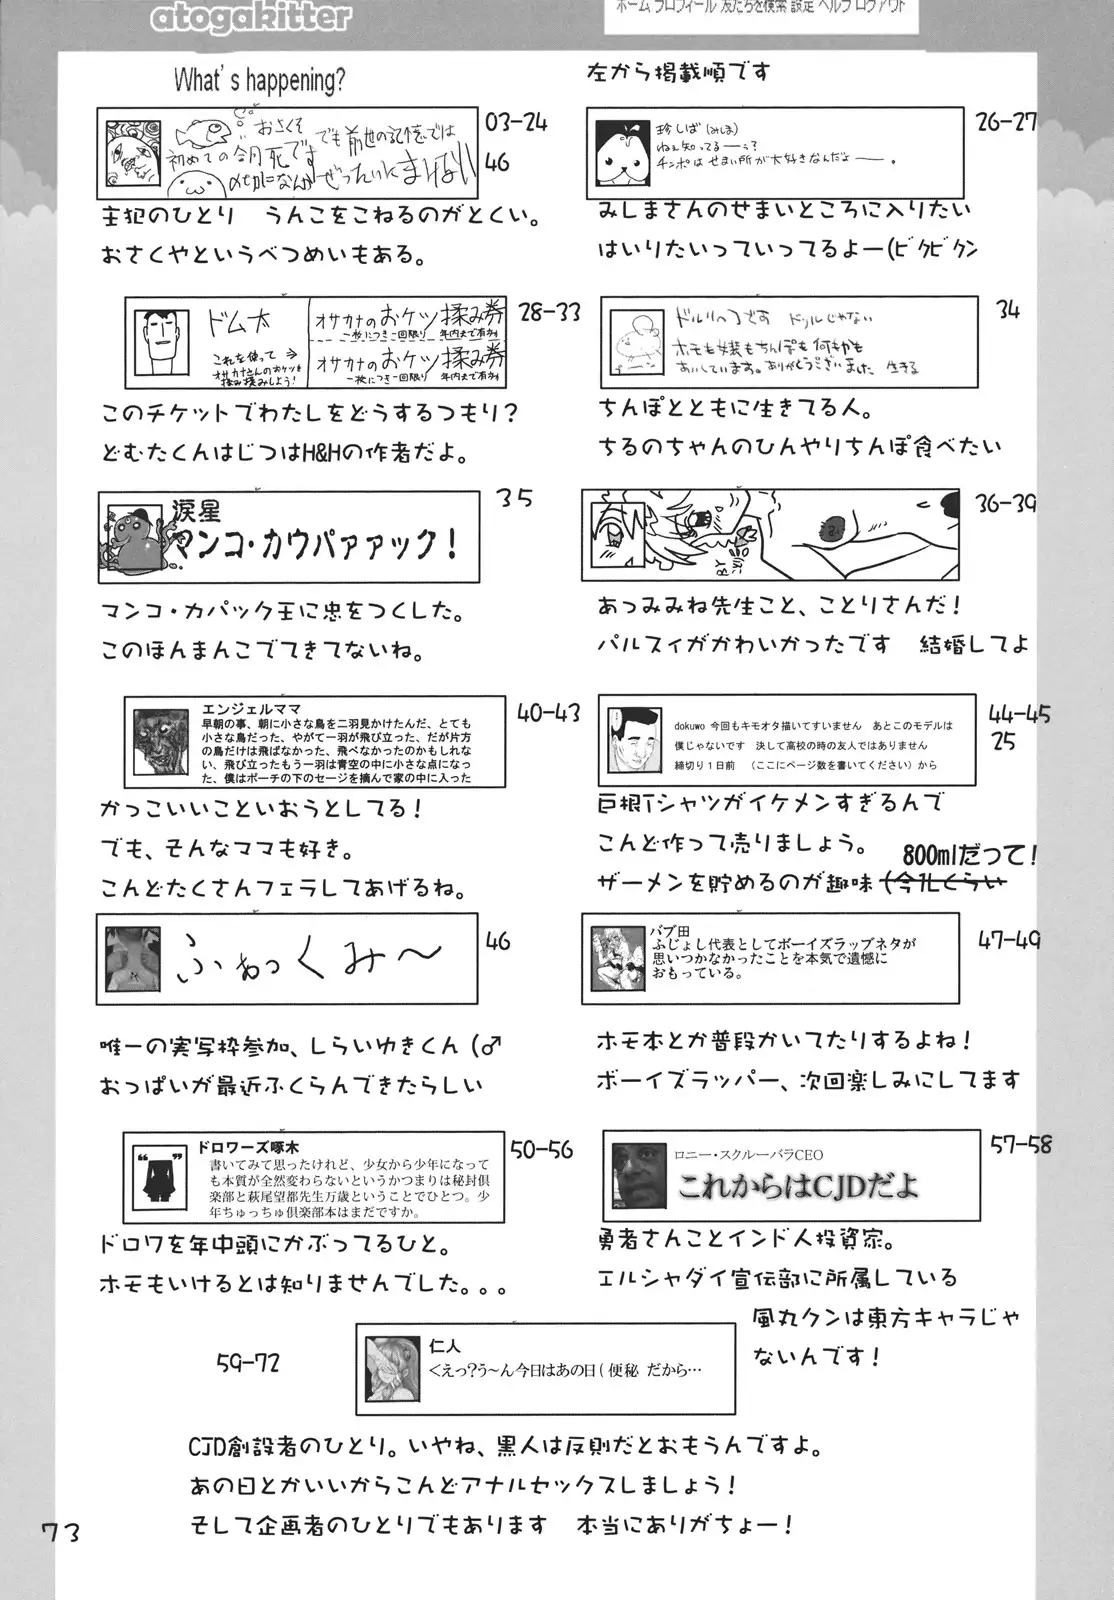 atogakitter
ホーム プロフィール 友だちを検索 設定 ヘルプ ログアウト
What's happening?
左から掲載順です
おさくそ
初めての合同死です
でも前世の記憶では
ぜったいにまけない
03-24
46
主犯のひとり　うんこをこねるのがとくい。
おさくやというべつめいもある。
珍しば(みしま)
ねぇ知ってるーーぅ?
チンポはせまい所が大好きなんだよーー。
26-27
みしまさんのせまいところに入りたい
はいりたいっていってるよー(ビクビクン
ドム太
これを使って⇒
オサカナさんのおケツを
揉み揉みしよう!
オサカナのおケツ揉み券
一枚につき一回限り 年内まで有効
オサカナのおケツ揉み券
一枚につき一回限り 年内まで有効
28-33
このチケットでわたしをどうするつもり?
どむたくんはじつはH&Hの作者だよ。
ドリルじゃない
ホモも嬢もちんぽも何もかも
あいしています。ありがとうございました 生きる
34
ちんぽとともに生きてる人。
ちるのちゃんのひんやりちんぽ食べたい
涙星
マンコ・カウパァァック!
35
マンコ・カパック王に忠をつくした。
このほんまんこでてきてないね。
36-39
あつみみね先生こと、ことりさんだ!
パルスィがかわいかったです　結婚してよ
エンジェルママ
早朝の事、朝に小さな鳥を二羽見かけたんだ、とても
小さな鳥だった、やがて一羽が飛び立った、だが片方
の鳥だけは飛ばなかった、飛べなかったのかもしれな
い、飛び立ったもう一羽は青空の中に小さな点になっ
た、僕はポーチの下のセージを摘んで家の中に入った
40-43
かっこいいこといおうとしてる!
でも、そんなママも好き。
こんどたくさんフェラしてあげるね。
dokuwo 今回もキモオタ描いてすいません　あとこのモデルは
僕じゃないです　決して高校の時の友人ではありません
締切り1日前　(ここにページ数を書いてください)から
44-45
25
巨根Tシャツがイケメンすぎるんで
こんど作って売りましょう。
800mlだって!
ザーメンを貯めるのが趣味
ふぁっくみ〜
46
唯一の実写枠参加、しらいゆきくん(♂
おっぱいが最近ふくらんできたらしい
バブ田
ふじょし代表としてボーイズラップネタが
思いつかなかったことを本気で遺憾に
おもっている。
47-49
ホモ本とか普段かいてたりするよね!
ボーイズラッパー、次回楽しみにしてます
ドロワーズ啄木
書いてみて思ったけれど、少女から少年になって
も本質が全然変わらないというかつまりは秘封倶
楽部と萩尾望都先生万歳ということでひとつ。少
年ちゅっちゅ倶楽部本はまだですか。
50-56
ドロワを年中頭にかぶってるひと。
ホモもいけるとは知りませんでした。。。
ロニー・スクルーバラCEO
これからはCJDだよ
57-58
勇者さんことインド人投資家。
エルシャダイ宣伝部に所属している
風丸クンは東方キャラじゃ
ないんです!
仁人
<えっ?う〜ん今日はあの日(便秘 だから…
59-72
CJD創設者のひとり。いやね、黒人は反則だとおもうんですよ。
あの日とかいいからこんどアナルセックスしましょう!
そして企画者のひとりでもあります　本当にありがちょー!
73